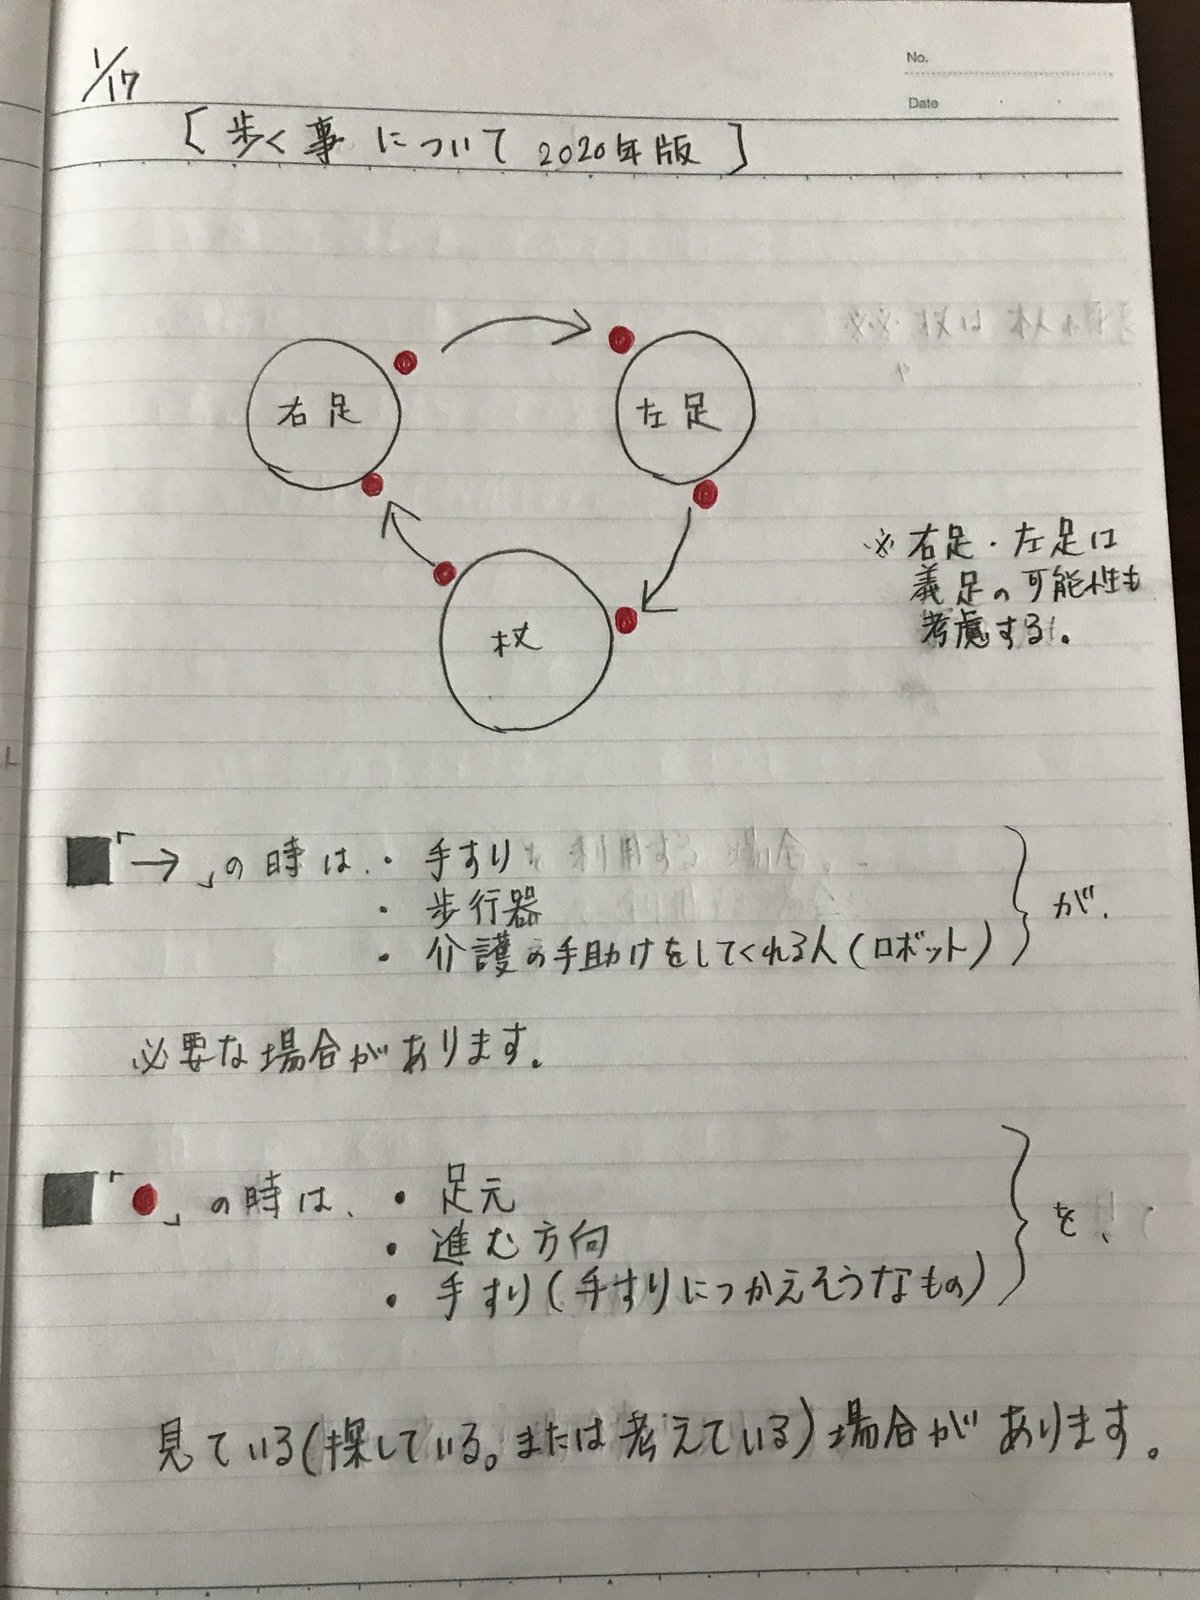 1/17
No.
Date
[歩く事について 2020年版]
右足
左足
杖
※右足・左足は
義足の可能性も
考慮する。
■「→」の時は、・手すり
・歩行器
・介護の手助けをしてくれる人(ロボット)
が、
必要な場合があります。
■「●」の時は、・足元
・進む方向
・手すり(手すりにつかえそうなもの)
を、
見ている(探している。または考えている)場合があります。